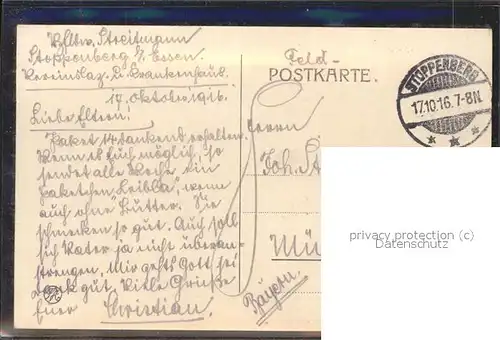 Wltw. Streitmann
Stoppenberg b/ Essen.
Vereinslaz. d. Krankenhaus.
17. Oktober 1916.
Liebe Eltern!
Paket 14 dankend erhalten.
Wenn es Euch möglich, so
sendet alle Woche ein
Paketchen "Leibla", wenn
auch ohne Butter. Sie
schmecken so gut. Auch soll
sich Vater ja nicht überan-
strengen. Mir gehts Gott sei
Dank gut. Viele Grüße
Euer Christian.
Feld-
POSTKARTE.
STOPPENBERG
17.10.16.7-8N
Herrn
Joh. St
Mü
Bayern.
privacy protection (c)
Datenschutz